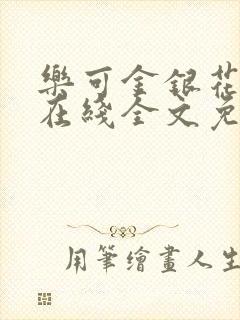 樂可金銀花
在綫全文免
用筆繪畫人生